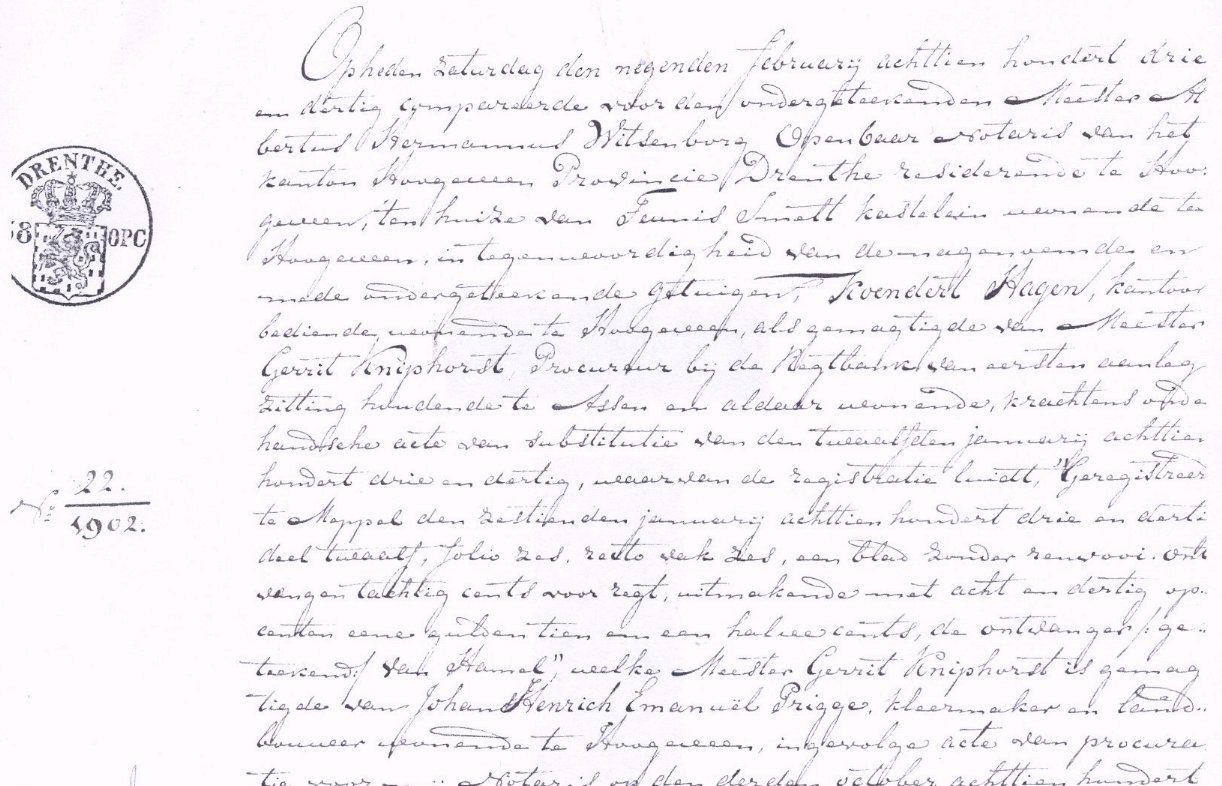 Opheden zaturdag den negenden februarij achttien hondert drie
en dertig compareerde voor den ondergeteekenden Meester Al
bertus Hermannus Witsenborg Openbaar Notaris van het
kanton Hoogeveen Provincie Drenthe residerende te Hoo:
geveen, ten huize van Teunis Smelt kastelein wonende te
Hoogeveen, in tegenwoordigheid van de nagenoemde en
mede ondergeteekende getuigen, Koendert Hagen, kantoor
bediende, wonende te Hoogeveen, als gemagtigde van Meester
Gerrit Kniphorst, Procureur bij de Regtbank van eersten aanleg
zitting houdende te Assen en aldaar wonende, krachtens onde
handsche acte van substitutie van den twaalfden januarij achttien
hondert drie en dertig, waarvan de registratie luidt, "Geregistreerd
te Meppel den zestienden januarij achttien hondert drie en derti
deel twaalf, folio zes, recto vak zes, een blad zonder renvooi. ont
vangen tachtig cents voor regt, uitmakende met acht en dertig op..
centen eene gulden tien en een halve cents, de ontvanger /: ge..
teekend :/ van Hamel", welke Meester Gerrit Kniphorst is gemag
tigde van Johan Henrich Emanuël Prigge, kleermaker en land..
bouwer wonende te Hoogeveen, ingevolge acte van procura
tie voor Notaris op den derden october achttien hundert
DRENTHE
38 OPC
N.º 22.
1902.